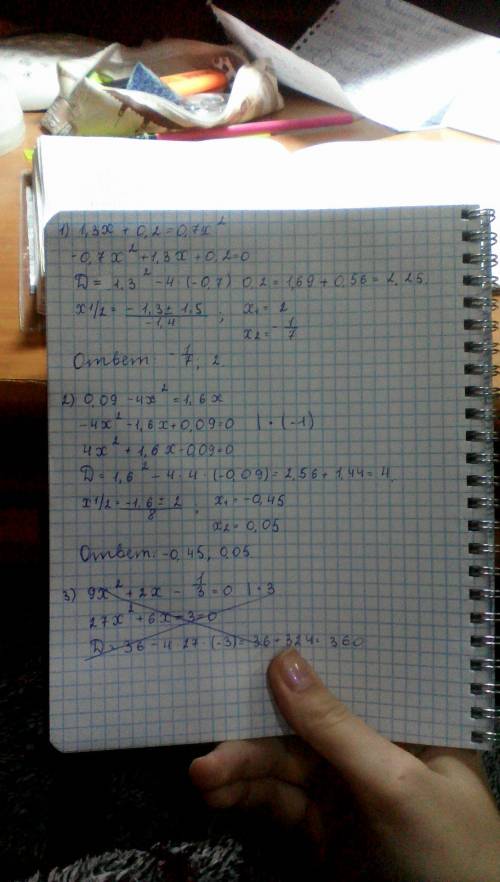 1) 1,3x + 0,2 = 0,7x²
-0,7x² + 1,3x + 0,2 = 0
D = 1,3² - 4 (-0,7) 0,2 = 1,69 + 0,56 = 2,25
x1/2 = (-1,3 ± 1,5)/(-1,4) ; x₁ = 2
x₂ = -1/7
Ответ: -1/7 ; 2
2) 0,09 - 4x² = 1,6x
-4x² - 1,6x + 0,09 = 0 | · (-1)
4x² + 1,6x - 0,09 = 0
D = 1,6² - 4 · 4 · (-0,09) = 2,56 + 1,44 = 4
x1/2 = (-1,6 ± 2)/8 , x₁ = -0,45
x₂ = 0,05
Ответ: -0,45, 0,05
3) 9x² + 2x - 1/3 = 0 | · 3
27x² + 6x - 3 = 0
D = 36 - 4 · 27 · (-3) = 36 + 324 = 360